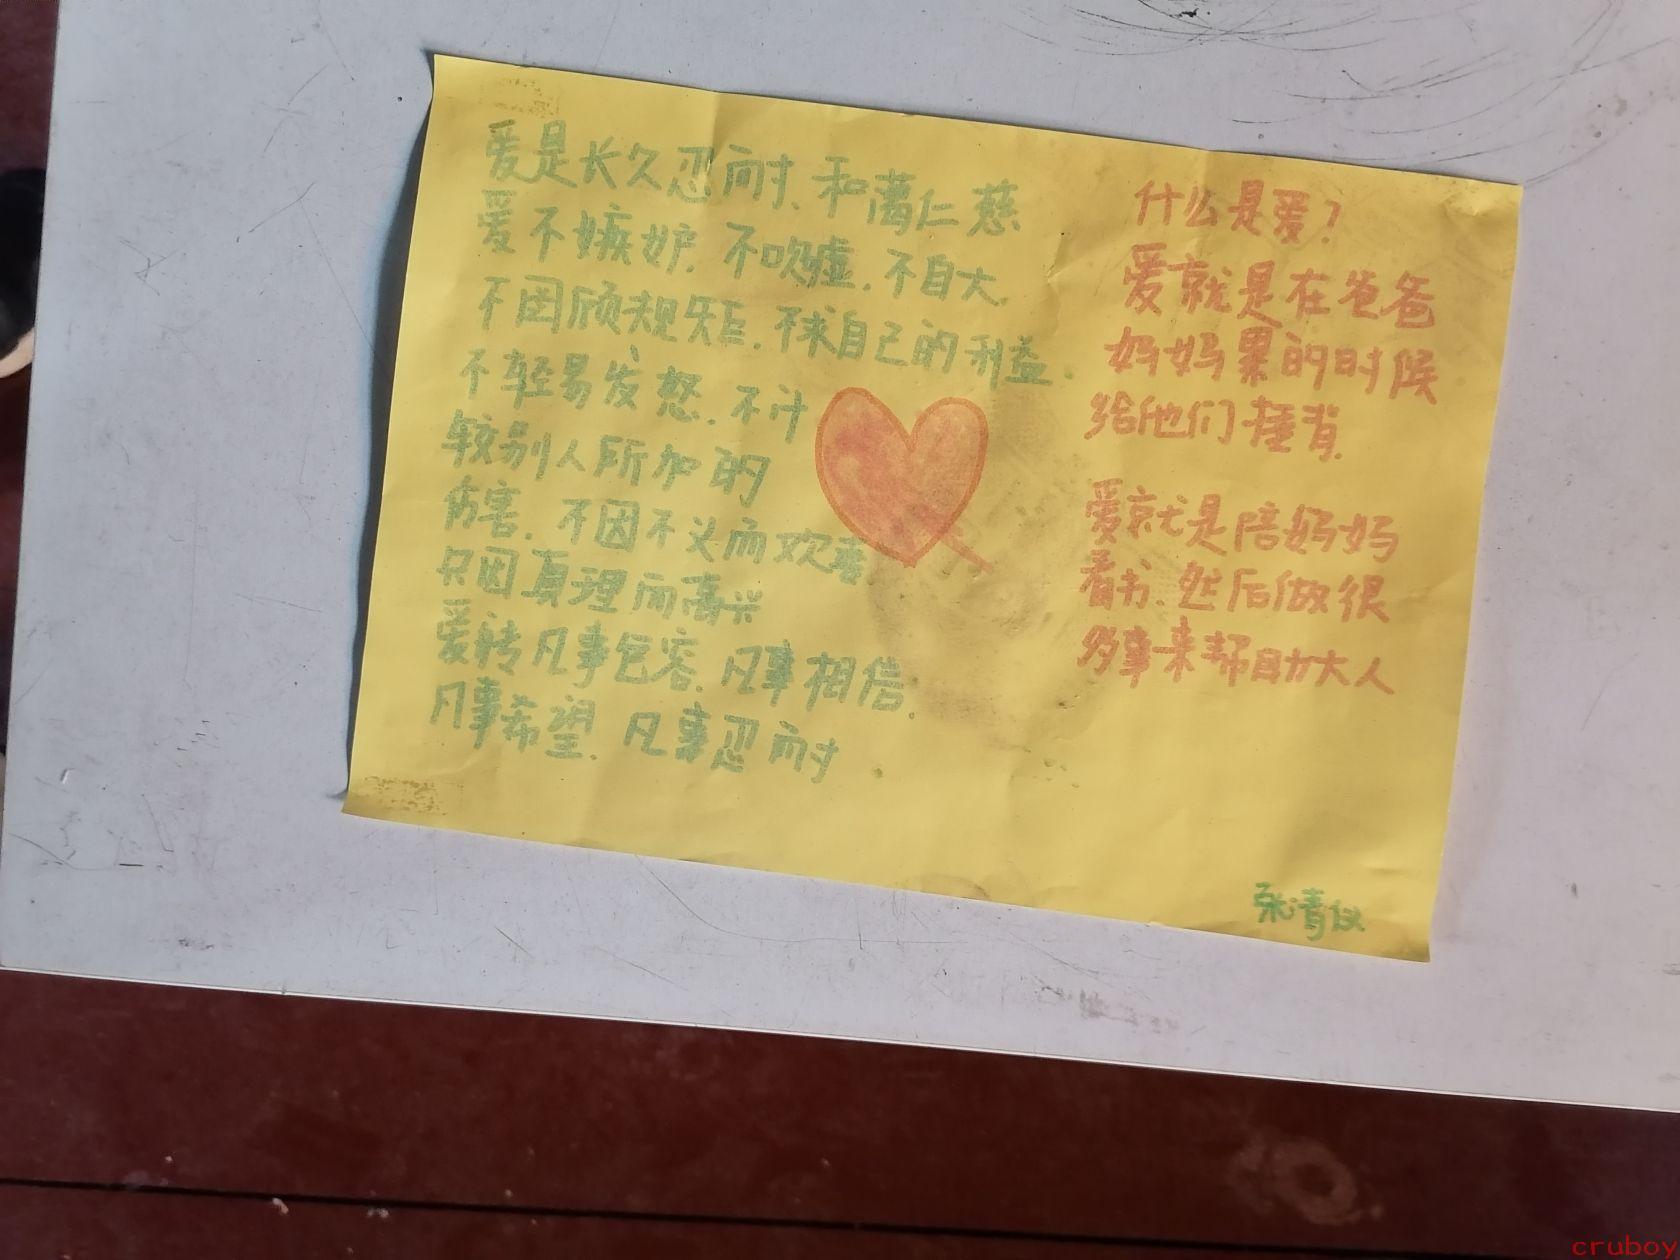 爱是长久忍耐、和蔼仁慈
爱不嫉妒.不吹嘘.不自大.
不因顾规矩.不求自己的利益.
不轻易发怒.不计
较别人所加的
伤害.不因不义而欢喜
只因真理而高兴
爱 凡事包容.凡事相信.
凡事希望.凡事忍耐
什么是爱?
爱就是在爸爸
妈妈累的时候
给他们捶背.
爱就是陪妈妈
看书.然后做很
多事来帮助大人
张清仪
cruboy